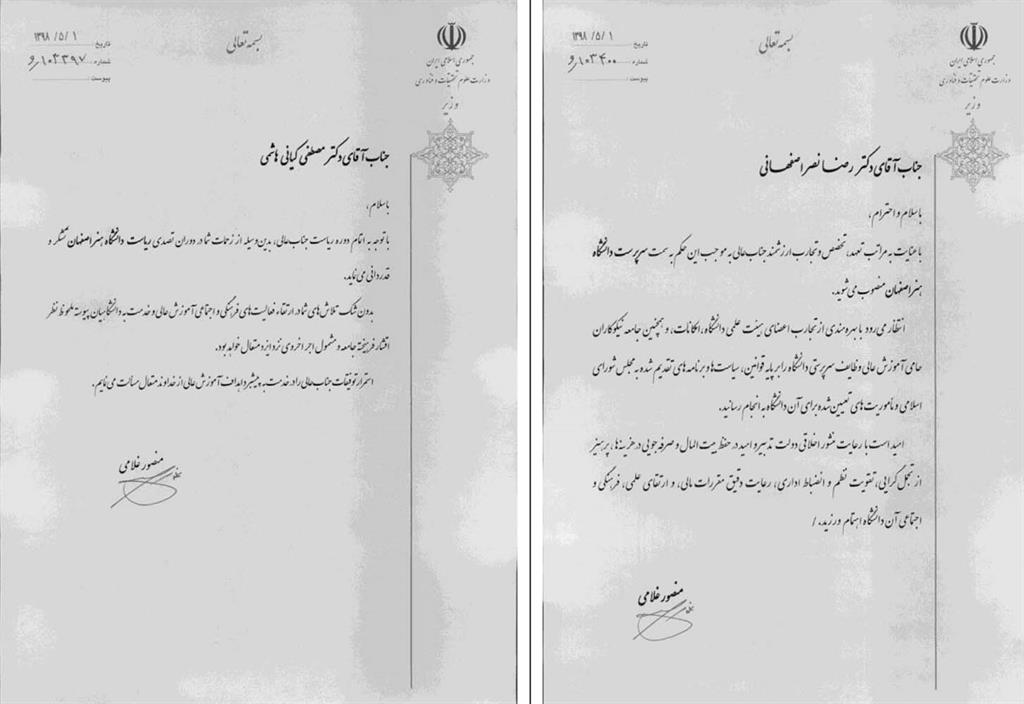 جمهوری اسلامی ایران
وزارت علوم تحقیقات و فناوری
وزیر
بسمه تعالی
تاریخ ۱۳۹۸/۵/۱
شماره ۱۰۳۴۰۰/و
پیوست
جناب آقای دکتر رضا نصر اصفهانی
با سلام و احترام،
با عنایت به مراتب تعهد، تخصص و تجارب ارزشمند جناب عالی به موجب این حکم به سمت سرپرست دانشگاه
هنر اصفهان منصوب می شوید.
انتظار می رود با بهره مندی از تجارب اعضای هیئت علمی دانشگاه، امکانات، و همچنین جامعه نیکوکاران
حامی آموزش عالی وظایف سرپرستی دانشگاه را بر پایه قوانین، سیاست ها و برنامه های تقدیم شده به مجلس شورای
اسلامی و مأموریت های تعیین شده برای آن دانشگاه به انجام رسانید.
امید است با رعایت منشور اخلاقی دولت تدبیر و امید در حفظ بیت المال و صرفه جویی در هزینه ها، پرهیز
از تجمل گرایی، تقویت نظم و انضباط اداری، رعایت دقیق مقررات مالی، و ارتقای علمی، فرهنگی و
اجتماعی آن دانشگاه اهتمام ورزید. /
منصور غلامی
جمهوری اسلامی ایران
وزارت علوم تحقیقات و فناوری
وزیر
بسمه تعالی
تاریخ ۱۳۹۸/۵/۱
شماره ۱۰۳۳۹۷/و
پیوست
جناب آقای دکتر مصطفی کیانی هاشمی
با سلام،
با توجه به اتمام دوره ریاست جناب عالی، بدین وسیله از زحمات شما در دوران تصدی ریاست دانشگاه هنر اصفهان تشکر و
قدردانی می نماید.
بدون شک تلاش های شما در ارتقاء فعالیت های فرهنگی و اجتماعی آموزش عالی و خدمت به دانشگاهیان پیوسته ملحوظ نظر
اقشار فرهیخته جامعه و مشمول اجر اخروی نزد ایزد متعال خواهد بود.
استمرار توفیقات جناب عالی را در خدمت به پیشبرد اهداف آموزش عالی از خداوند متعال مسألت می نمایم.
منصور غلامی